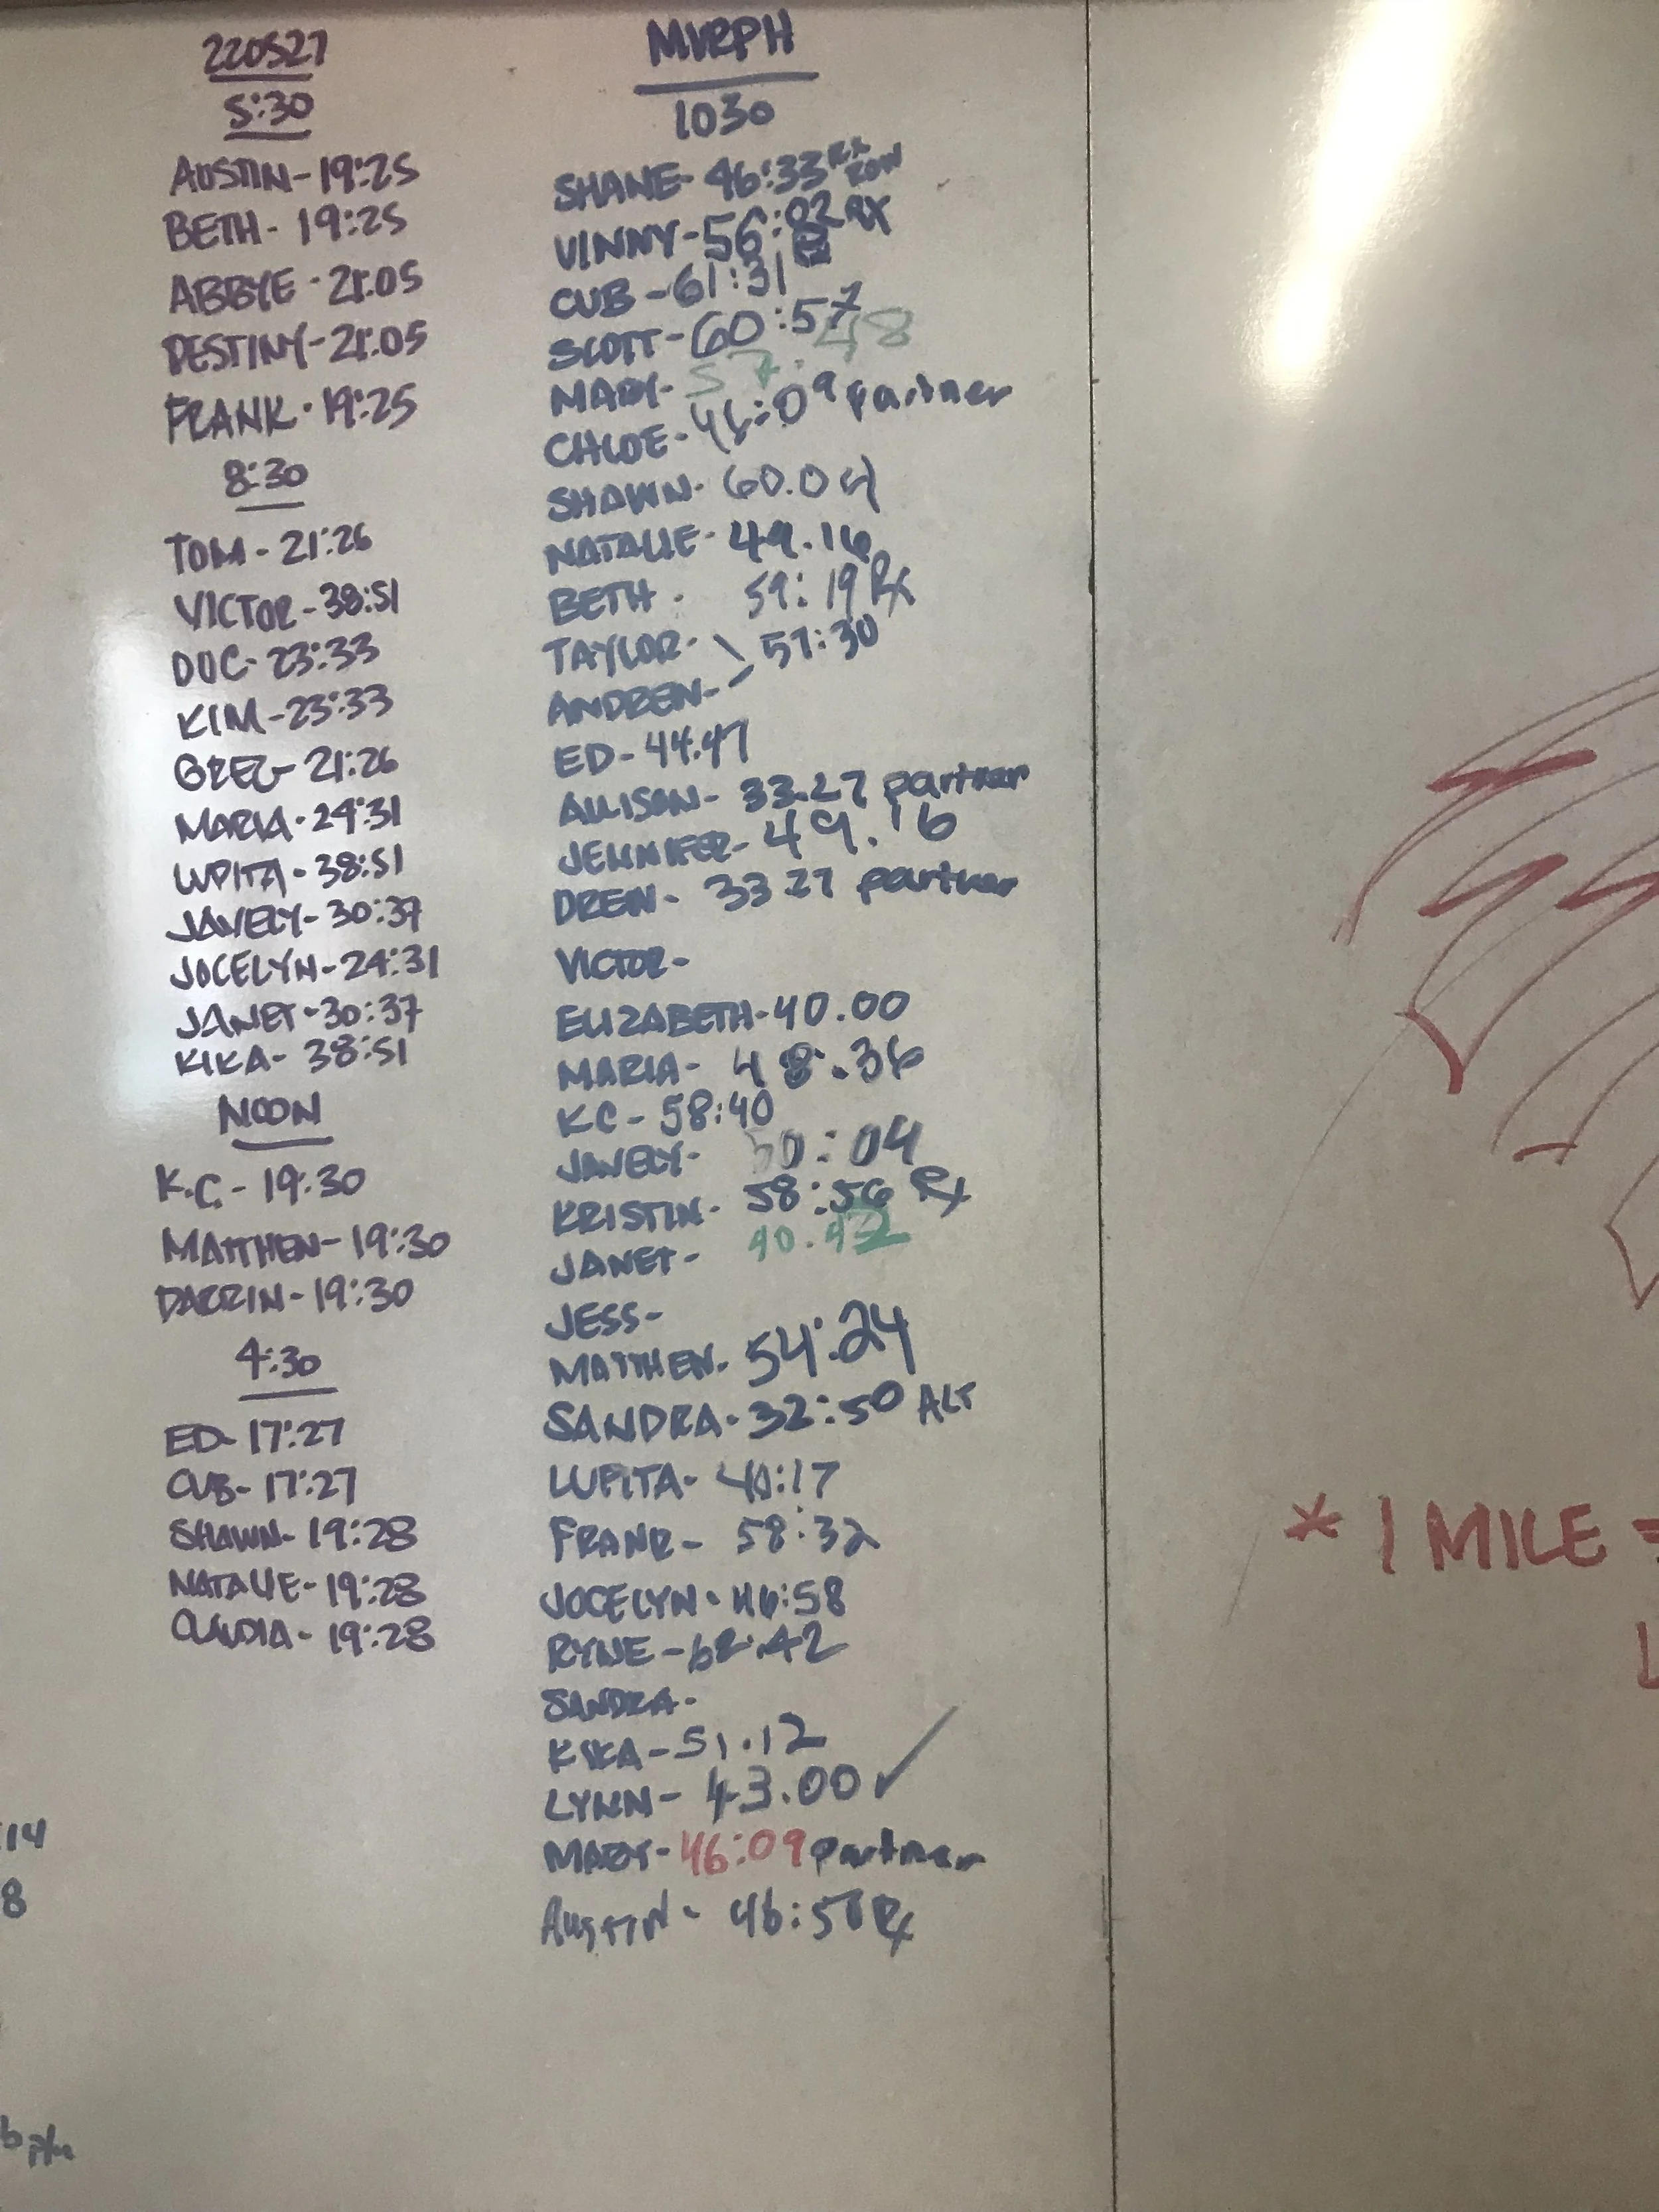 220527
5:30
AUSTIN - 19:25
BETH - 19:25
ABBYE - 21:05
DESTINY - 21:05
FRANK - 19:25
8:30
TOM - 21:26
VICTOR - 38:51
DOC - 23:33
KIM - 23:33
GREG - 21:26
MARIA - 24:31
LUPITA - 38:51
JAVELY - 30:37
JOCELYN - 24:31
JANET - 30:37
KIKA - 38:51
NOON
K.C. - 19:30
MATTHEW - 19:30
DARRIN - 19:30
4:30
ED - 17:27
CUB - 17:27
SHAWN - 19:28
NATALIE - 19:28
CLAUDIA - 19:28
MURPH
1030
SHANE - 46:33 RX ROW
VINNY - 56:02 RX
CUB - 61:31
SCOTT - 60:57
MARY - 57.48
CHLOE - 46:09 partner
SHAWN - 60.04
NATALIE - 49.16
BETH - 59:19 Rx
TAYLOR - 57:30
ANDREW -
ED - 44.47
ALLISON - 33.27 partner
JENNIFER - 49.16
DREW - 33 27 partner
VICTOR -
ELIZABETH - 40.00
MARIA - 48.36
KC - 58:40
JAVELY - 50:04
KRISTIN - 58:56 Rx
JANET - 40.42
JESS -
MATTHEW - 54:24
SANDRA - 32:50 ALT
LUPITA - 40:17
FRANK - 58:32
JOCELYN - 46:58
RYNE - 62:42
SANDRA -
KIKA - 51.12
LYNN - 43.00 ✓
MARY - 46:09 partner
AUSTIN - 46:58 Rx
14
8
* 1 MILE =